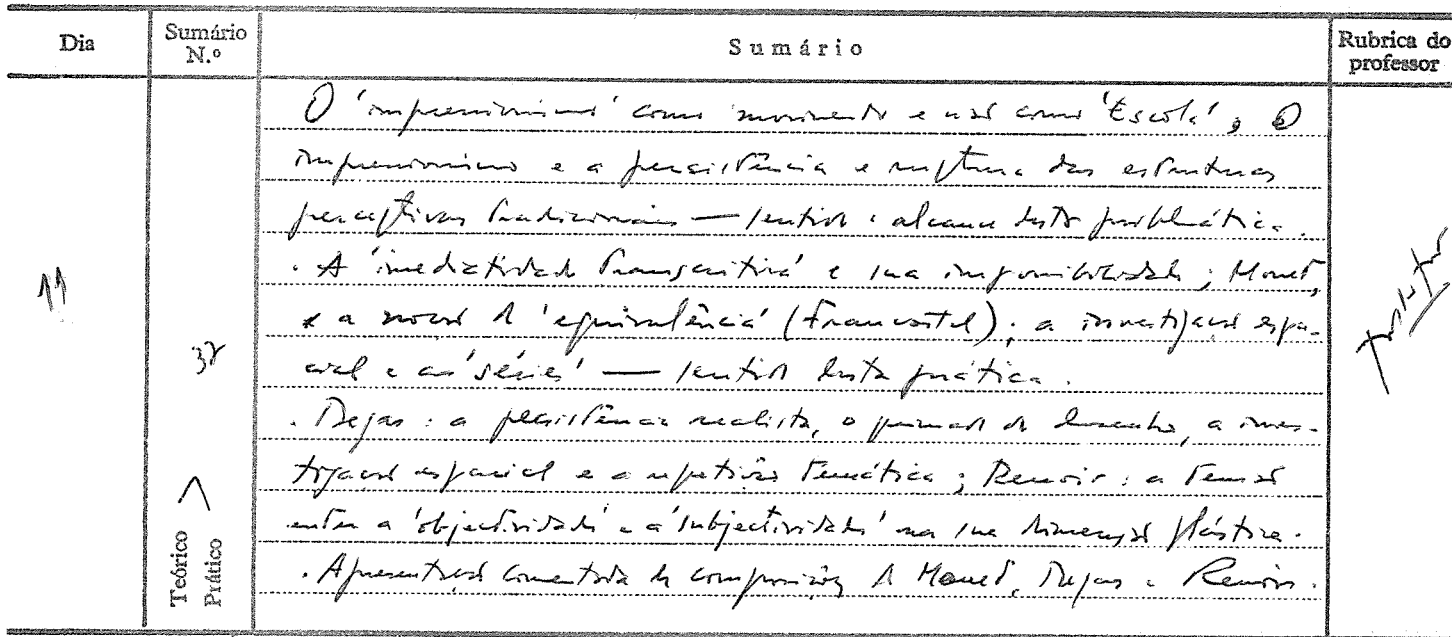 Dia
Sumário N.º
Sumário
Rubrica do professor
11
37
Teórico
Prático
O 'impressionismo' como movimento e não como 'Escola'; O
impressionismo e a persistência e ruptura das estruturas
perceptivas tradicionais — sentido e alcance desta problemática.
. A 'imediatividade transcritiva' e sua impossibilidade; Monet,
e a noção de 'equivalência' (Francastel); a investigação espa-
cial e as 'séries' — sentido desta prática.
. Degas: a persistência realista, o primado do desenho, a inves-
tigação espacial e a repetição temática; Renoir: a tensão
entre a 'objectividade' e a 'subjectividade' na sua dimensão plástica.
. Apresentação comentada de composições de Monet, Degas e Renoir.